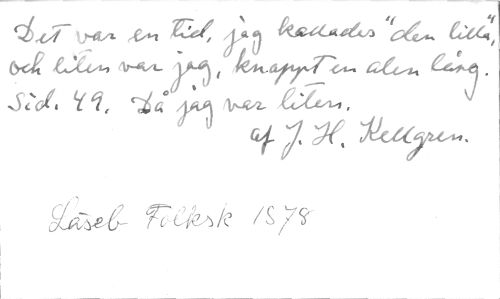 Det var en tid, jag kallades "den lilla",
och liten var jag, knappt en alen lång.
Sid. 49. Då jag var liten.
af J. H. Kellgren.
Läseb Folksk 1878